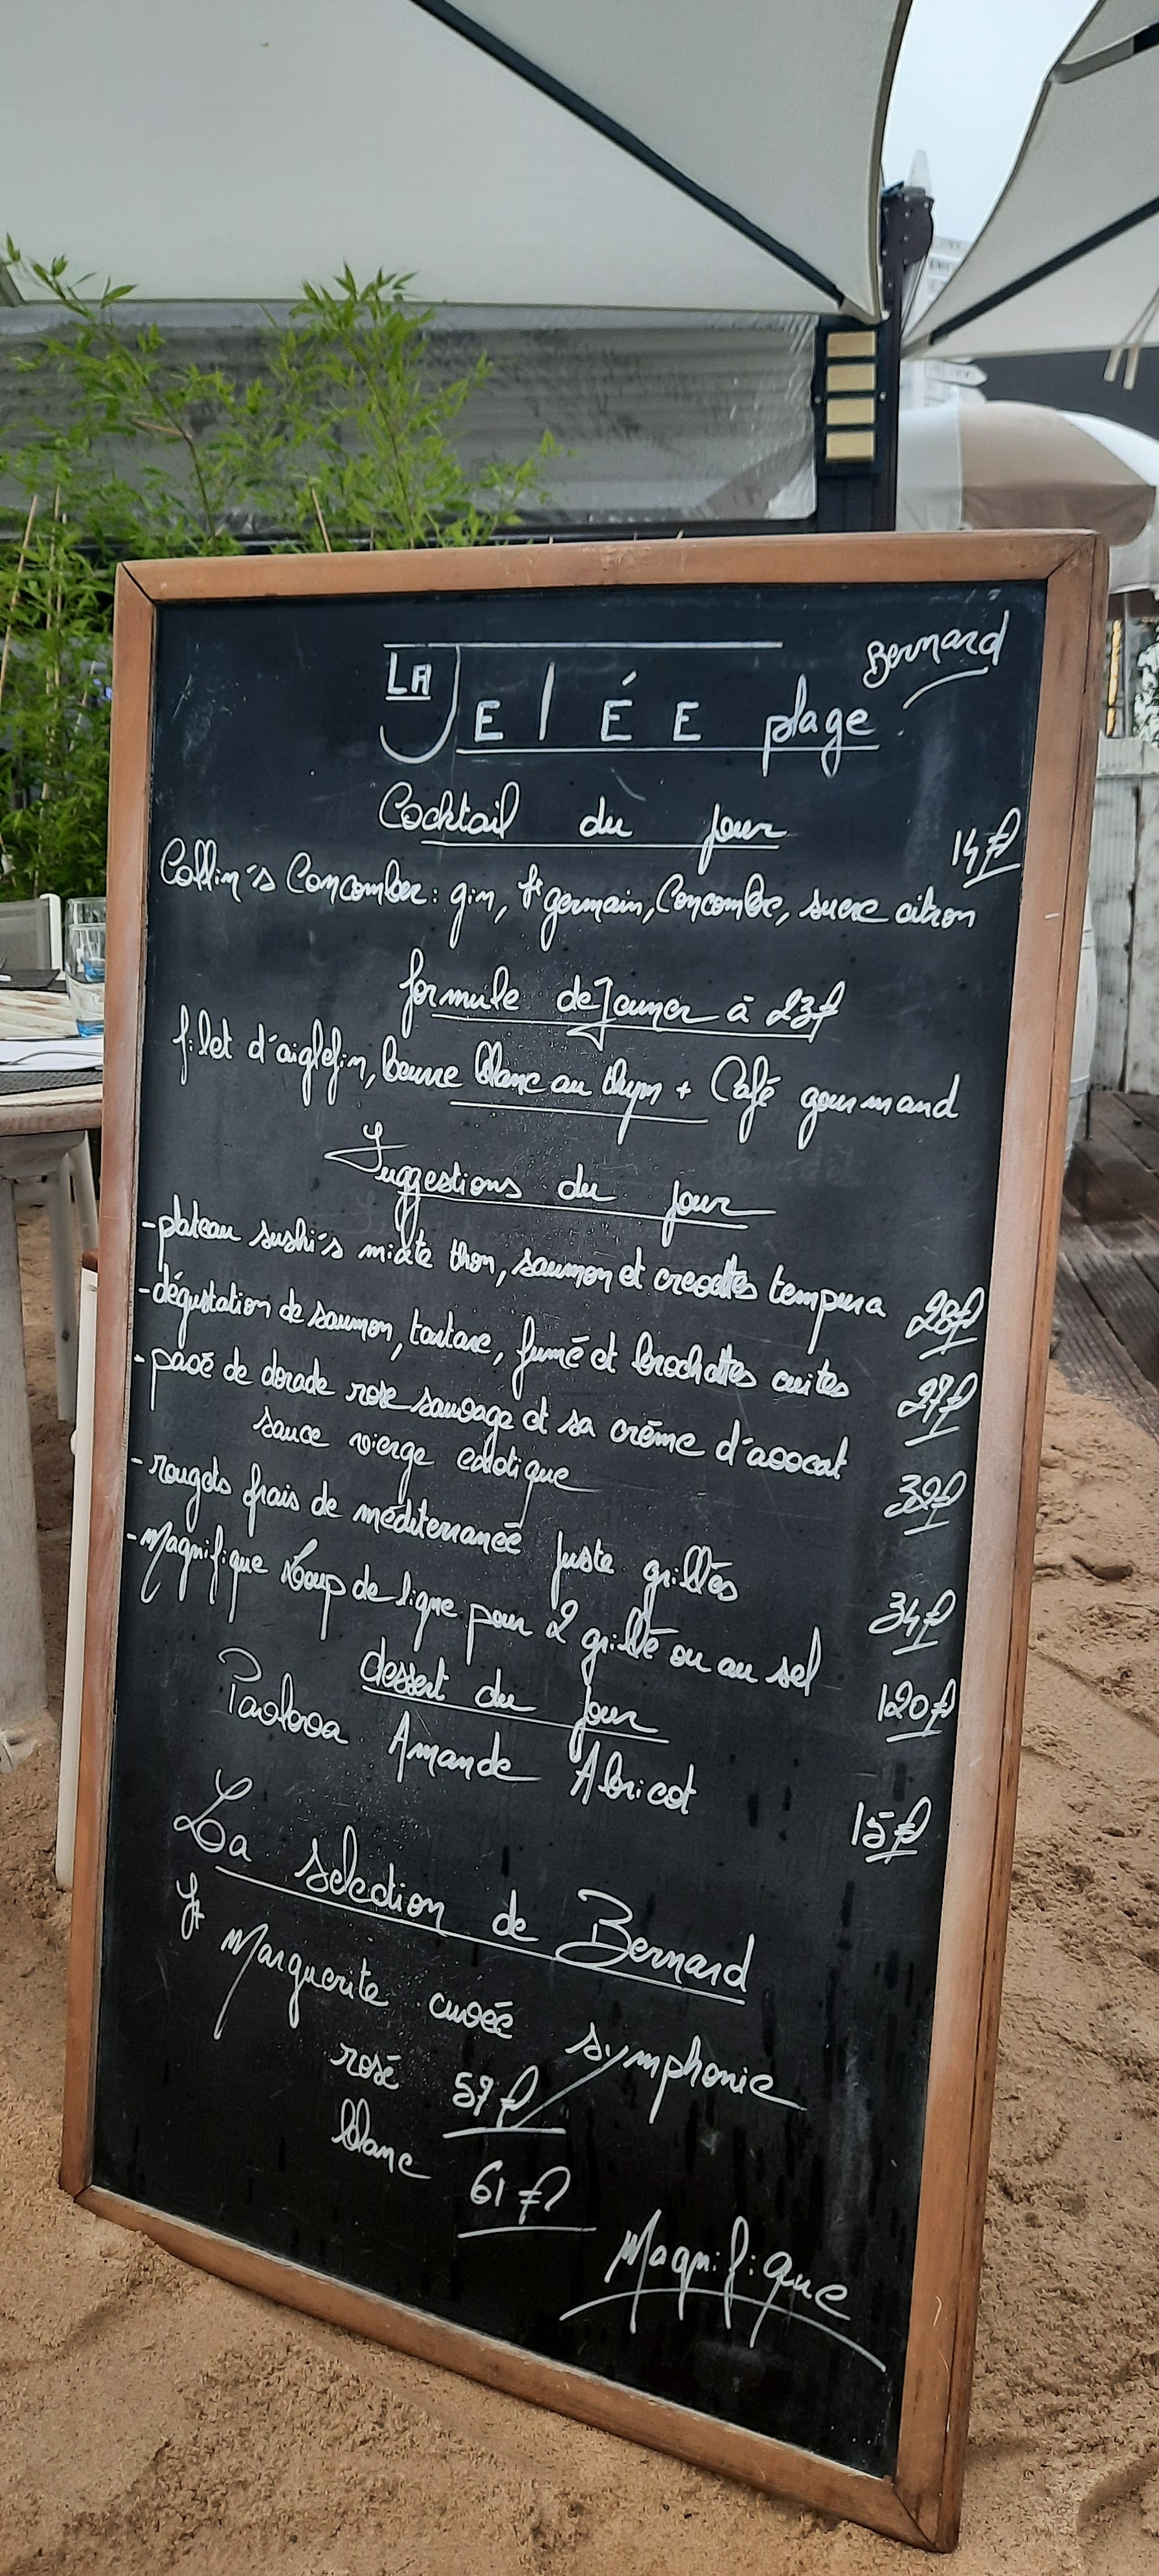 LA JETÉE plage
Bernard
Cocktail du jour
14€
Collin's Concomber: gin, St germain, Concombre, sucre citron
formule deJeuner à 23€
filet d'aiglefin, beurre blanc au thym + Café gourmand
Suggestions du jour
-plateau sushi's mixte thon, saumon et crevettes tempura 28€
-dégustation de saumon, tartare, fumé et brochettes cuites 27€
-pavé de dorade rose sauvage et sa crème d'avocat
sauce vierge exotique 32€
-rougets frais de méditerranée juste grillés 34€
-Magnifique Loup de ligne pour 2 grillé ou au sel 120€
dessert du jour
Pavlova Amande Abricot 15€
La selection de Bernard
St Marguerite cuvée symphonie
rosé 59€
blanc 61€
Magnifique